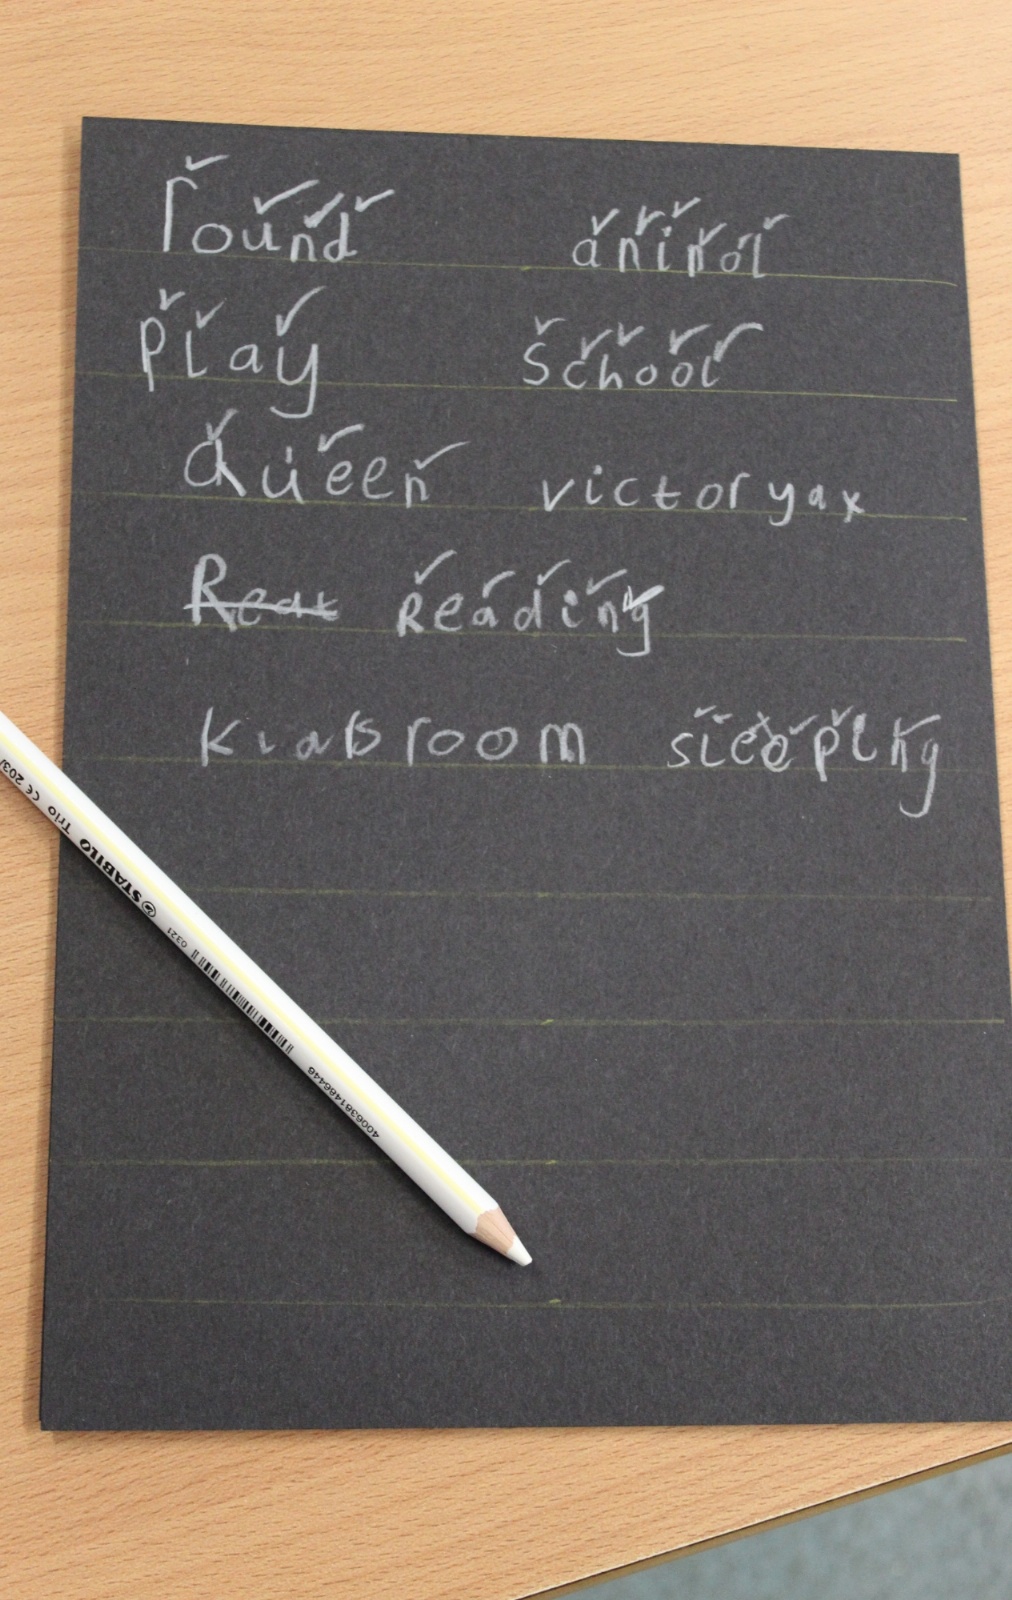 round aninol
play school
Queen victoryax
Reat Reading
klassroom sleeping
STABILO Trio CE 203/
0321
4006381486446